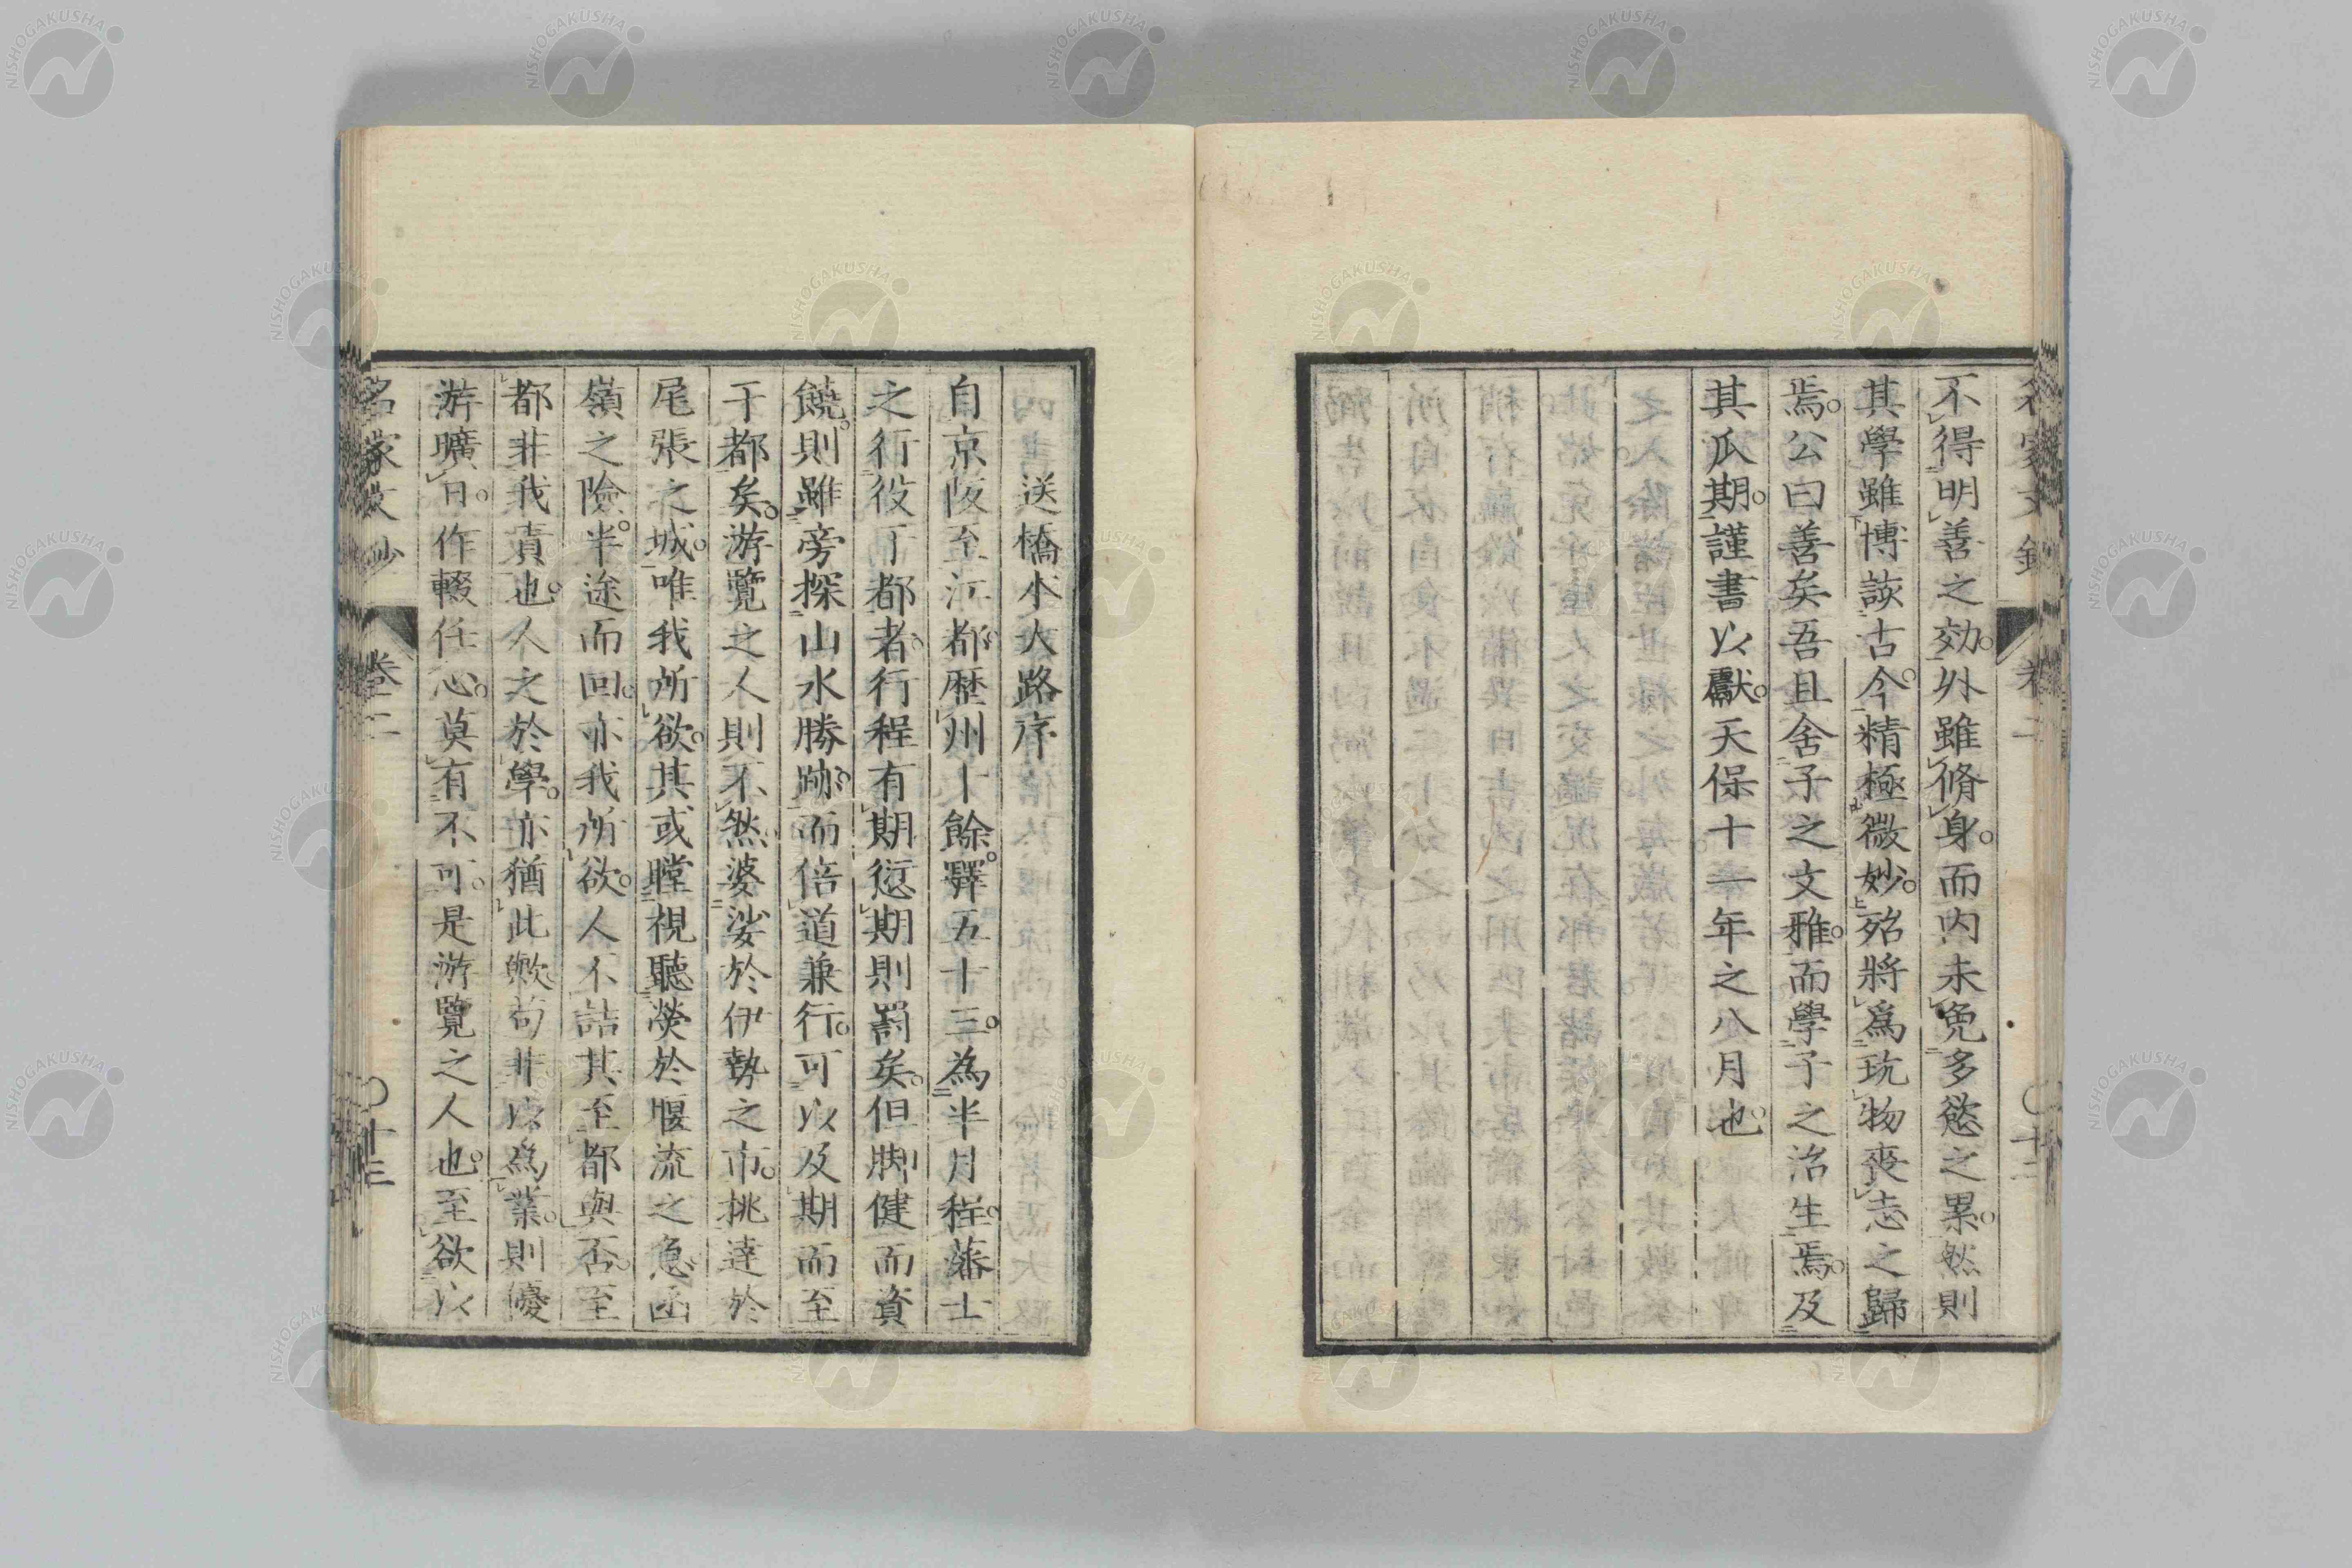 不得明善之効。外雖脩身。而内未免多慾之累。然則
其學雖博談古今。精極微妙。殆將爲玩物喪志之歸
焉。公曰善矣吾且舍子之文雅。而學子之治生焉。及
其瓜期。謹書以獻。天保十一年之八月也。
送橋本大路序
自京阪至江都。歴州十餘。驛五十三。為半月程。藩士
之行役于都者。行程有期。愆期則罰矣。但脚健而資
饒。則雖旁探山水勝跡。而倍道兼行。可以及期而至
于都矣。游覽之人則不然。婆娑於伊勢之市。挑達於
尾張之城。唯我所欲。其或瞠視聽熒於堰流之急。函
嶺之險。半途而回。亦我所欲。人不詰其至都與否。至
都非我責也。人之於學。亦猶此歟。苟非以為業。則優
游曠日。作輟任心。莫有不可。是游覽之人也。至欲以
名家文鈔
卷二
〇十三
名家文鈔
卷二
〇十二
NISHOGAKUSHA